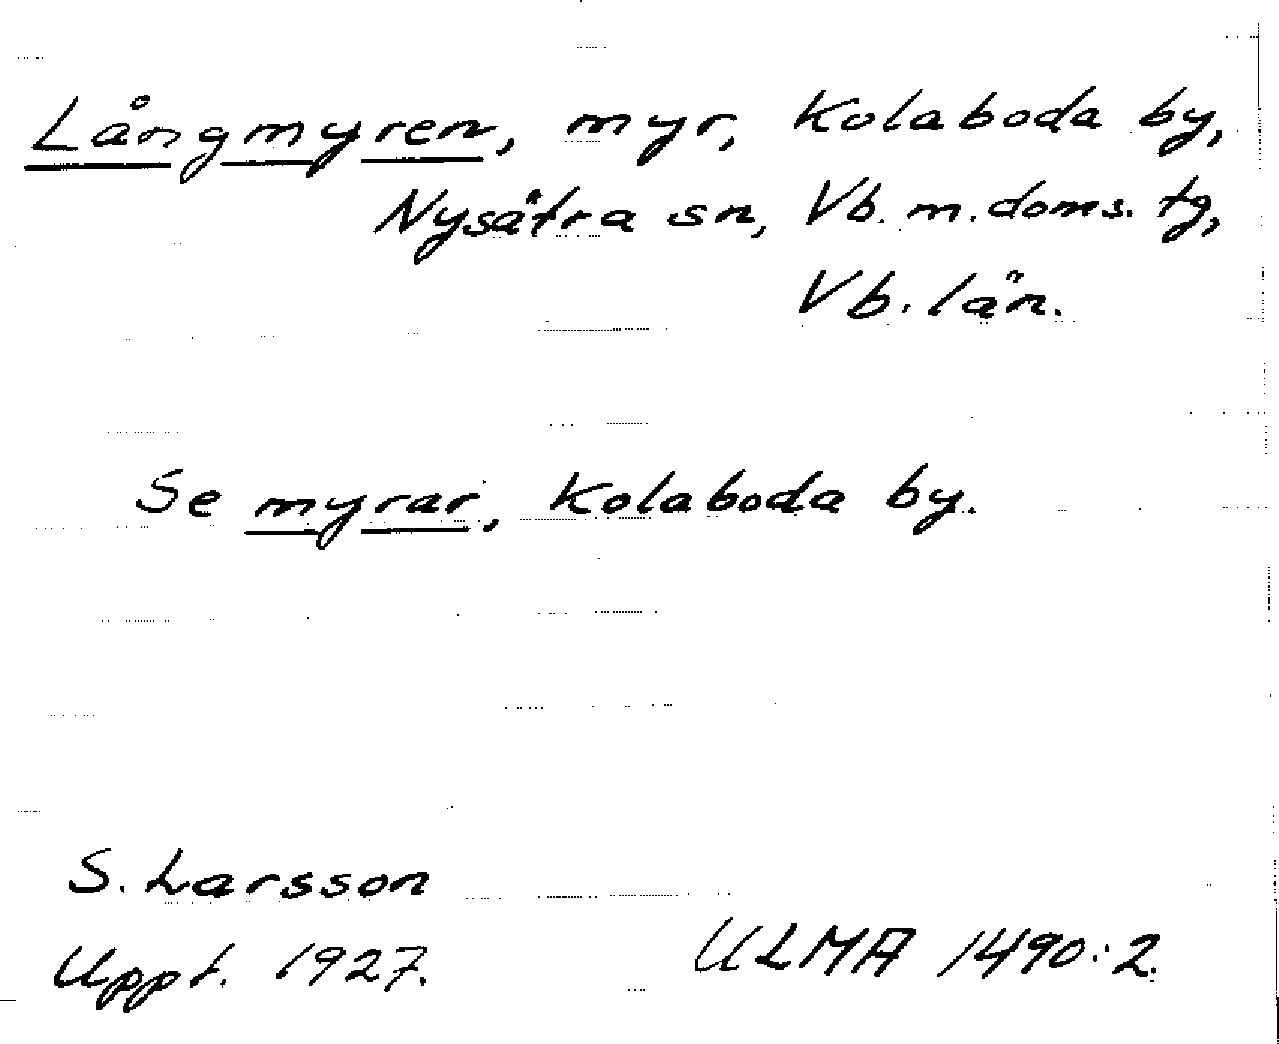 Långmyren, myr, Kolaboda by,
Nysätra sn, Vb. m. doms. tg,
Vb. län.
Se myrar, Kolaboda by.
S. Larsson
Uppt. 1927.
ULMA 1490:2.